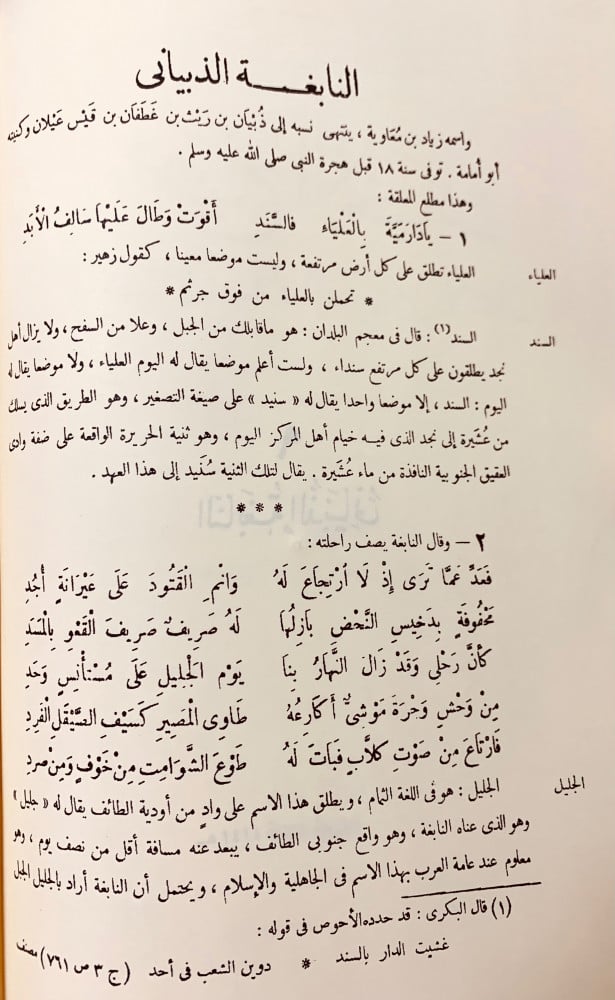 النابغـة الذبيانى
واسمه زياد بن مُعَاوية ، ينتهى نسبه إلى ذُبْيَان بن رَيْث بن غَطَفَان بن قَيْس عَيْلان وكنيته
أبو أمامة . توفى سنة ١٨ قبل هجرة النبى صلى الله عليه وسلم .
وهذا مطلع المعلقة :
١ – يَادَارَمَيَّةَ بِالْعَلْيَاءِ فالسَّنَدِ أَقْوَتْ وَطَالَ عَلَيْهَا سَالِفُ الْأَبَدِ
العلياء العلياء تطلق على كل أرض مرتفعة ، وليست موضعا معينا ، كقول زهير :
* تحملن بالعلياء من فوق جرثم *
السند السند(١) : قال فى معجم البلدان : هو ماقابلك من الجبل ، وعلا من السفح ، ولا يزال أهل
نجد يطلقون على كل مرتفع سنداء ، ولست أعلم موضعا يقال له اليوم العلياء ، ولا موضعا يقال له
اليوم : السند ، إلا موضعا واحدا يقال له « سنيد » على صيغة التصغير ، وهو الطريق الذى يسلك
من عُشَيرة إلى نجد الذى فيه خيام أهل المركز اليوم ، وهو ثنية الحريرة الواقعة على ضفة وادى
العقيق الجنوبية النافذة من ماء عُشَيرة . يقال لتلك الثنية سُنَيد إلى هذا العهد .
* * *
٢ – وقال النابغة يصف راحلته :
فَعَدِّ عَمَّا تَرَى إِذْ لَا ارْتِجَاعَ لَهُ وَانْمِ الْقُتُودَ عَلَى عَيْرَانَةٍ أُجُدِ
مَحْفُوفَةٍ بِدَخِيسِ النَّحْضِ بَازِلُهَا لَهُ صَرِيفٌ صَرِيفَ الْقَعْوِ بِالْمَسَدِ
كَأَنَّ رَحْلِى وَقَدْ زَالَ النَّهَارُ بِنَا يَوْمَ الْجَلِيلِ عَلَى مُسْتَأْنِسٍ وَحَدِ
مِنْ وَحْشِ وَجْرَةَ مَوْشِىٍّ أَكَارِعُهُ طَاوِى الْمَصِيرِ كَسَيْفِ الصَّيْقَلِ الْفَرِدِ
فَارْتَاعَ مِنْ صَوْتِ كَلَّابٍ فَبَاتَ لَهُ طَوْعَ الشَّوَامِتِ مِنْ خَوْفٍ وَمِنْ صَرَدِ
الجليل الجليل : هو فى اللغة الثمام ، ويطلق هذا الاسم على وادٍ من أودية الطائف يقال له « جليل »
وهو الذى عناه النابغة ، وهو واقع جنوبى الطائف ، يبعد عنه مسافة أقل من نصف يوم ، وهو
معلوم عند عامة العرب بهذا الاسم فى الجاهلية والإسلام ، ويحتمل أن النابغة أراد بالجليل الجبل
(١) قال البكرى : قد حدده الأحوص فى قوله :
غشيت الدار بالسند * دوين الشعب فى أحد (ج ٣ ص ٧٦١) مصنف